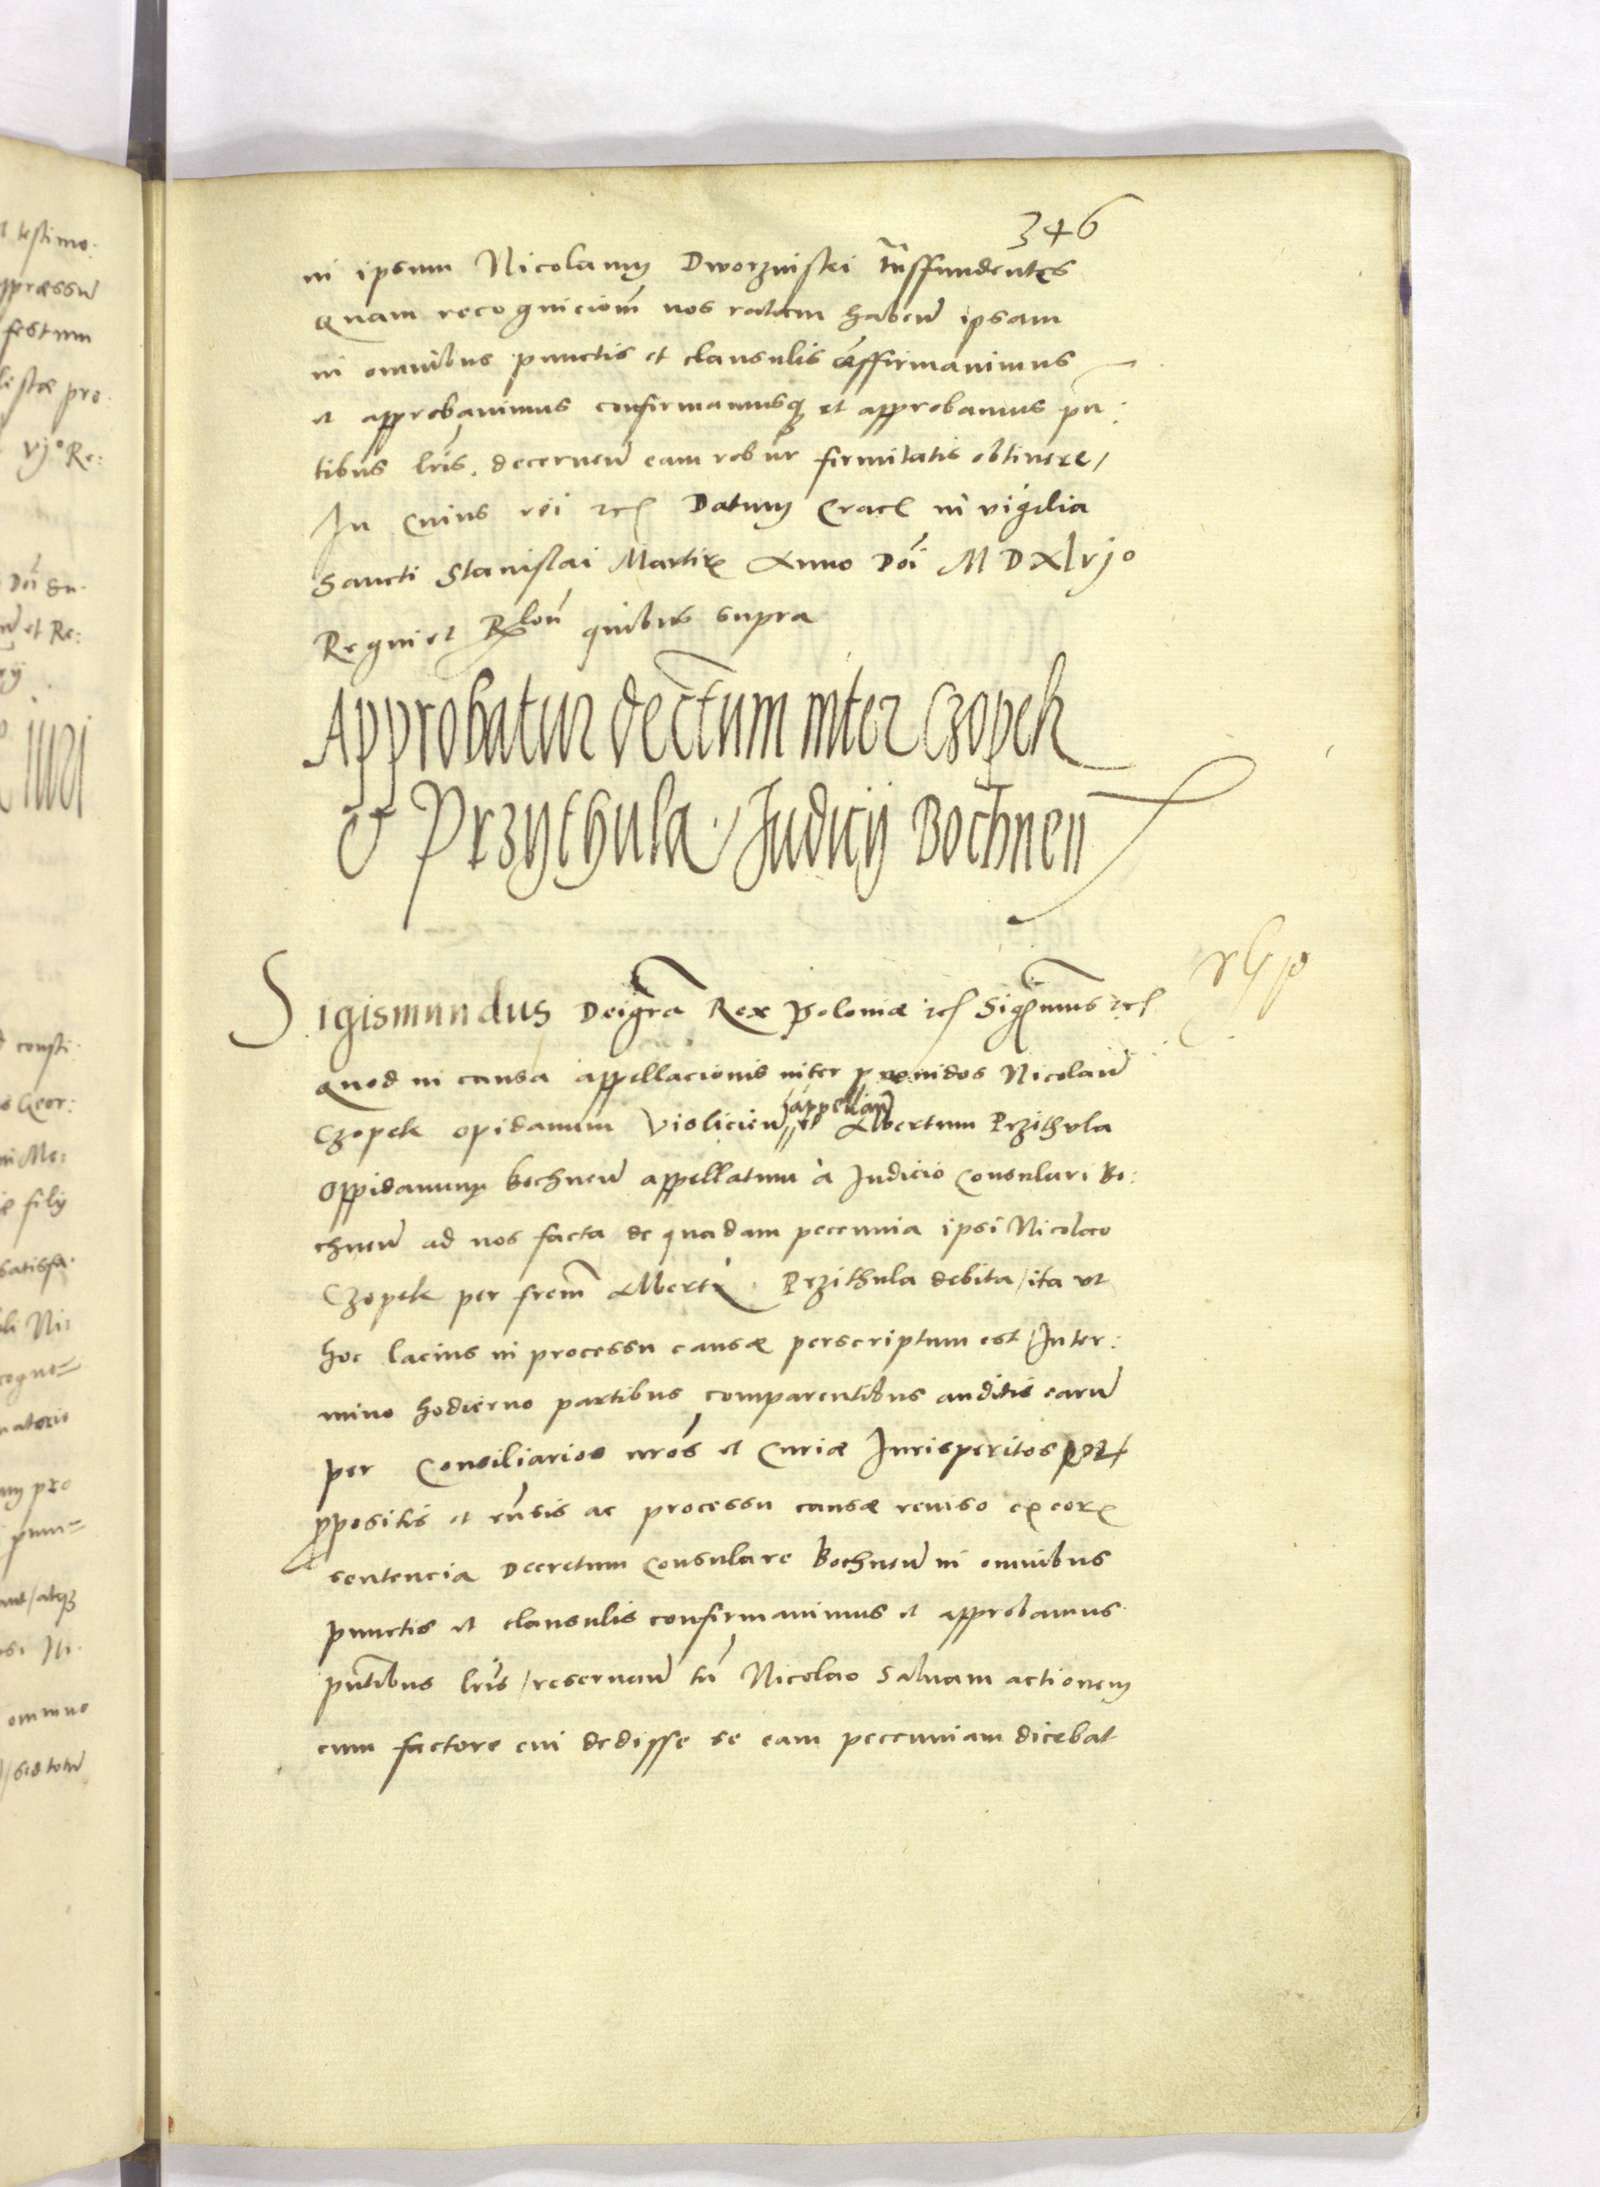 346
in ipsum Nicolaum Dworzniski trãsffundentes
Quam recognicioñ nos ratam habeñ ipsam
in omnibus punctis et clausulis cõffirmavimus
et approbavimus confirmamusq₃ et approbamus pñ:
tibus lr̃is. decerneñ eam robur firmitatis obtinere /
In Cuius rei etc̃ Datum Crac̃ in vigilia
Sancti Stanislai Martir̃ Anno Doĩ M D Xlvjo
Regni et quibus supra
Approbatur dectũm inter Czopek
& Przythula Judicij Bochnen̄
Sigismundus Dei gr̃a Rex Poloniæ etc̃ Sig̃mus etc̃
Quod in causa appellacionis inter providos Nicolaũ
Czopek opidanum Violicieñ et Albertum Przithula
appellañ
Oppidanum bochneñ appellatum à Judicio Consulari Bo:
chneñ ad nos facta de quadam peccunia ipsi Nicolao
Czopek per frem̃ Alberti Przithula debita / ita ut
hoc lacius in processu causæ perscriptum est / In ter:
mino hodierno partibus comparentibus auditis earũ
per Consiliarios nr̃os et Curiæ Jurisperitos
ꝓpositis et rñsis ac processu causæ reviso ex eor̃
sentencia Decretum Consulare Bochneñ in omnibus
punctis et clausulis confirmavimus et approbamus
pñtibus lr̃is / reservañ tñ Nicolao Salvam actionem
cum factore cui dedisse se eam peccuniam dicebat
t testimo.
festum
pro.
vjo Re:
Doĩ
et Re:
iuri
consti:
Geor:
Me:
filij
satisfa.
Ni:
pro
atq₃
omnino